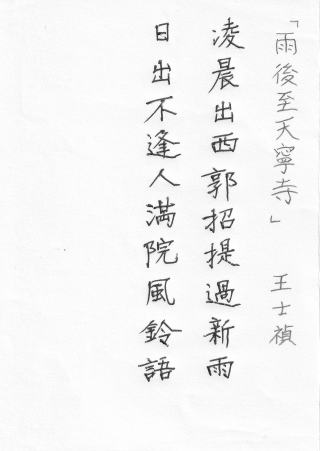 「雨後至天寧寺」 王士禎
凌晨出西郭招提過新雨
日出不逢人滿院風鈴語